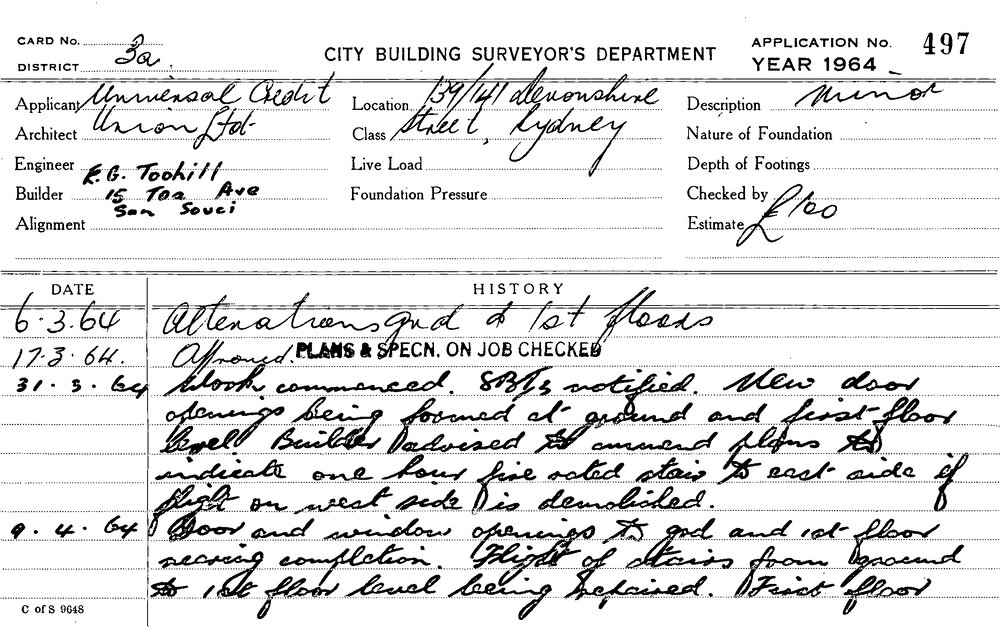 CARD No.
CITY BUILDING SURVEYOR'S DEPARTMENT
APPLICATION No. 497
DISTRICT 3a.
YEAR 1964
Applicant Universal Credit
Location 139/141 Devonshire
Description Minor
Architect Union Ltd.
Class Street, Sydney
Nature of Foundation
Engineer E.G. Toohill
Live Load
Depth of Footings
Builder 15 Toa Ave
San Souci
Foundation Pressure
Checked by
Alignment
Estimate £100
DATE HISTORY
6.3.64 Alterations grd & 1st floors
17.3.64. Approved. PLANS & SPECN. ON JOB CHECKED
31.3.64 Work commenced. notified. New door
openings being formed at ground and first floor
level. Builder advised to ammend plans to
indicate one hour fire rated stair to east side if
flight on west side is demolished.
9.4.64 Door and window openings to grd and 1st floor
nearing completion. Flight of stairs from ground
to 1st floor level being repaired. First floor
C of S 9648